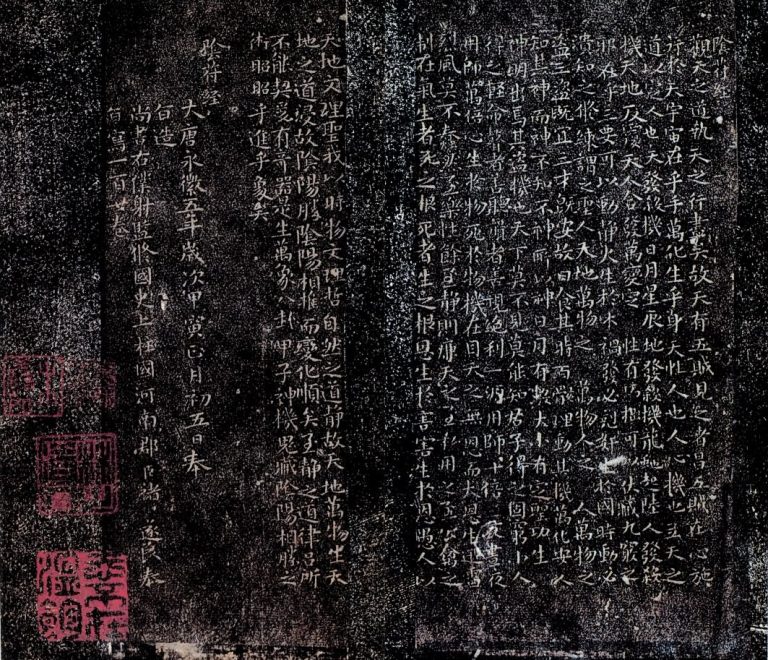 陰符經
觀天之道執天之行盡矣故天有五賊見之者昌五賊在心施
行於天宇宙在乎手萬化生乎身天性人也人心機也立天之
道以定人也天發殺機日月星辰地發殺機龍蛇起陸人發殺
機天地反覆天人合發萬變定 性有巧拙可以伏藏九竅之
邪在乎三要可以動靜火生於木禍發必剋姧 於國時動必
潰知之修練謂之聖人天地萬物之 萬物人之 人萬物之
盜三盜既宜三才既安故曰食其時百骸理動其機萬化安人
知其神而神不知不神所以神日月有數大小有定聖功生
神明出焉其盜機也天下莫不見莫能知君子得之固窮小人
得之輕命瞽者善聽聾者善視絕利一源用師十倍 晝夜
用師萬倍心生於物死於物機在目天之無恩而大恩生迅雷
烈風莫不蠢然至樂性餘至靜則廉天之至私用之至公禽之
制在氣生者死之根死者生之根恩生於害害生於恩愚人以
天地文理聖我以時物文理哲自然之道靜故天地萬物生天
地之道浸故陰陽勝陰陽相推而變化順矣至靜之道律呂所
不能契爰有奇器是生萬象八卦甲子神機鬼藏陰陽相勝之
術昭昭乎進乎象矣
陰符經
大唐永徽五年歲次甲寅正月初五日奉
旨造
尚書右僕射監修國史上柱國河南郡臣 遂良奉
旨寫一百廿卷